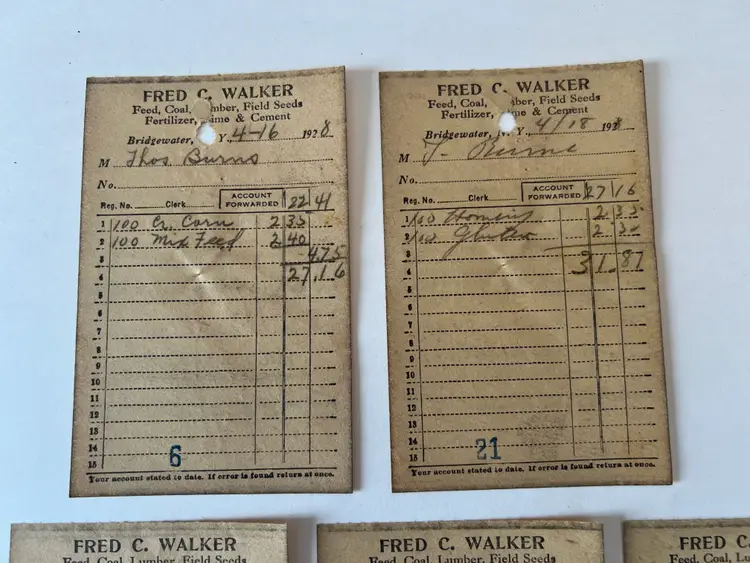 FRED C. WALKER
Feed, Coal, mber, Field Seeds
Fertilizer, ime & Cement
Bridgewater, Y. 4-16 1928
M Thos Burns
No.
Reg. No. Clerk ACCOUNT FORWARDED 22 41
1 100 Cr. Corn 2 35
2 100 Mix Feed 2 40
3 4 75
4 27.16
5
6
7
8
9
10
11
12
13
14
15
6
Your account stated to date. If error is found return at once.
FRED C. WALKER
Feed, Coal, ber, Field Seeds
Fertilizer, ime & Cement
Bridgewater, N. Y. 4/18 1928
M T.
No.
Reg. No. Clerk ACCOUNT FORWARDED 27 16
1 100 Hominy 2 35
2 100 Gluten 2
3
4 31.87
5
6
7
8
9
10
11
12
13
14
15
21
Your account stated to date. If error is found return at once.
FRED C. WALKER
Feed, Coal, Lumber, Field Seeds
FRED C. WALKER
Feed, Coal, Lumber, Field Seeds
FRED C.
Feed, Coal,